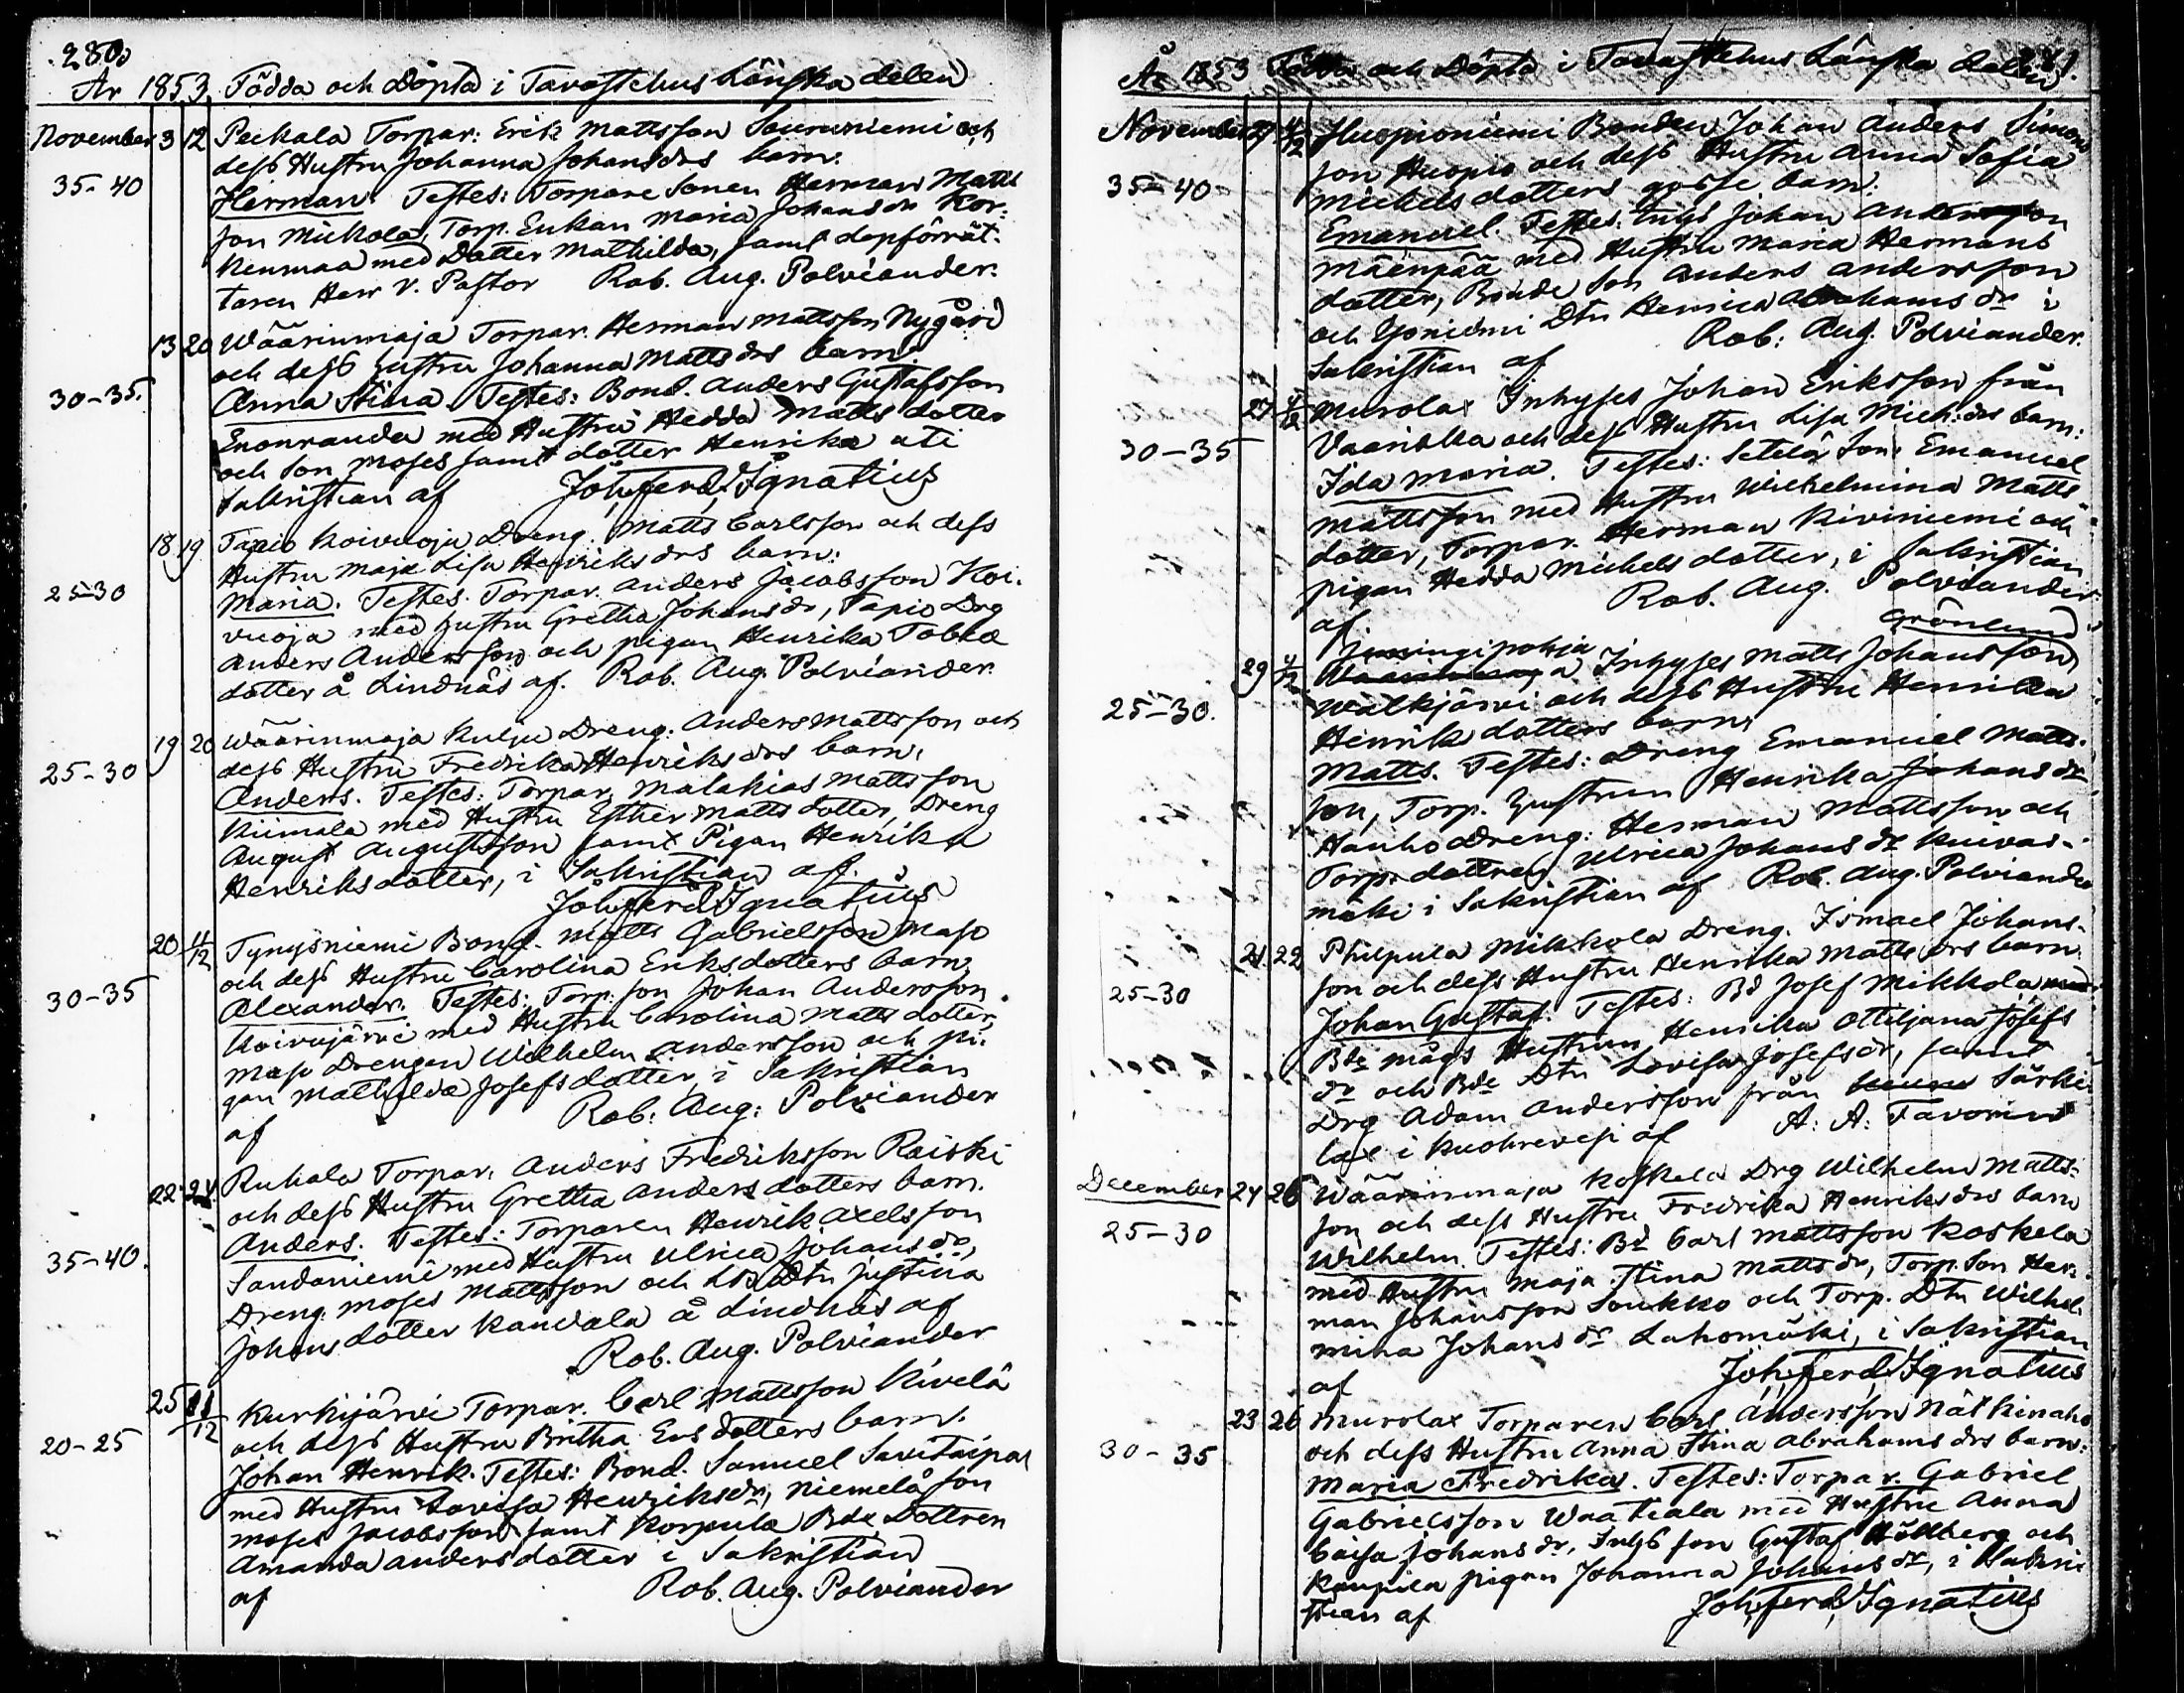 280.
År 1853. Födda och Döpta i Tavastehus Länska delen
November 3 12 Peckala Torpar: Erik Mattsson Souruniemi och
dess Hustru Johanna Johansdrs barn:
35-40
Herman. Testes: Torpare Sonen Herman Matts
son Mickola, Torp. Enkan Maria Johansdr Kor-
kenmaa med Dotter Mathilda, samt dopförrät-
taren Herr V. Pastor Rob. Aug. Polviander.
13 20 Wäärinmaja Torpar. Herman Mattsson Nygård
och dess Hustru Johanna Mattsdrs barn:
30-35.
Anna Stina. Testes: Bond. Anders Gustafsson
Enonranda med Hustru Hedda Matts dotter
och Son Moses samt dotter Henrika uti
Sakristian af Joh. Ferd. Ignatius
18 19 Tapio Koivuoja Dreng. Matts Carlsson och dess
Hustru Maja Lisa Henriksdrs barn:
25-30
Maria. Testes. Torpar. Anders Jacobsson Koi-
vuoja med Hustru Gretha Johansdr, Tapio Drg
Anders Andersson och pigan Henrika Tobias
dotter å Lindnäs af. Rob. Aug. Polviander.
19 20 Wäärinmaja Kulju Dreng. Anders Mattsson och
dess Hustru Fredrika Henriksdrs barn,
25-30
Anders. Testes: Torpar. Malakias Mattsson
Kiimala med Hustru Esther Matts dotter, Dreng
August Augustsson samt Pigan Henrika
Henriksdotter, i Sakristian af.
Joh. Ferd. Ignatius
20 4/12 Tynysniemi Bond. Matts Gabrielsson Maso
och dess Hustru Carolina Eriksdotters barn,
30-35
Alexander. Testes: Torp. son Johan Andersson
Koivujärvi med Hustru Carolina Matts dotter,
Maso Drengen Wilhelm Andersson och pi-
gan Mathilda Josefsdotter, i Sakristian
af Rob: Aug: Polviander
22 24 Ruhala Torpar. Anders Fredriksson Raiski
och dess Hustru Gretha Anders dotters barn.
35-40.
Anders. Testes: Torparen Henrik Axelsson
Sandaniemi med Hustru Ulrica Johansdr,
Dreng. Moses Mattsson och Dtr Justina
Johans dotter Kandala å Lindnäs af
Rob. Aug. Polviander
25 11/12 Kurkijärvi Torpar. Carl Mattsson Kivelä
och dess Hustru Britha Ersdotters barn.
20-25
Johan Henrik. Testes: Bond. Samuel Savitaipal
med Hustru Lovisa Henriksdr, Niemelä son
Moses Jacobsson samt Korpula Bde Dottren
Amanda Andersdotter i Sakristian
af Rob. Aug. Polviander
281.
År 1853 Födda och Döpta i Tavastehus Länska delen
November 27 4/12 Huopioniemi Bonden Johan Anders Simons
son Huopio och dess Hustru Anna Sofia
35-40
Michelsdotters gosse barn:
Emanuel. Testes. Inhs Johan Andersson
Mäenpää med Hustru Maria Hermans
dotter, Bonde Son Anders Andersson
och Yoniemi Dtr Henrica Abrahamsdr i
Sakristian af Rob: Aug. Polviander.
27 4/12 Murolax Inhyses Johan Eriksson från
Vaariskka och dess Hustru Lisa Mich:drs barn:
30-35
Ida Maria. Testes: Setelä Son. Emanuel
Mattsson med Hustru Wilhelmina Matts
dotter, Torpar. Herman Kiviniemi och
pigan Hedda Michelsdotter, i Sakristian
af Rob. Aug. Polviander.
Grönlund
Jumingipohja
29 4/12 Inhyses Matts Johansson
25-30.
Walkjärvi och dess Hustru Henrika
Henriks dotters barn,
Matts. Testes: Dreng Emanuel Matts-
son, Torp. Hustrun Henrika Johansdr
Hanho Dreng: Herman Mattsson och
Torp. dottren Ulrica Johansdr Kuivas-
mäki i Sakristian af Rob. Aug. Polviander
21. 22 Philpula Mikkola Dreng. Ismael Johans-
son och dess Hustru Henrika Mattsdrs barn.
25-30
Johan Gustaf. Testes: Bd Josef Mikkola med
Bde mågs Hustrun Henrika Ottiljana Josefs
dr och Bde Dtr Lovisa Josefsdr, samt
Drg Adam Andersson från Särki-
lax i Kuohrevesi af A. A. Favorin
December 24 26 Wäärinmaja Koskela Drg Wilhelm Matts-
son och dess Hustru Fredrika Henriksdrs barn
25-30
Wilhelm. Testes: Bd Carl Mattsson Koskela
med Hustru Maja Stina Mattsdr, Torp. Son Her-
man Johansson Soukko och Torp. Dtr Wilhel-
mina Johansdr Lahomäki, i Sakristian
af Joh. Ferd. Ignatius
23 26 Murolax Torparen Carl Andersson Nätkinaho
och dess Hustru Anna Stina Abrahamsdrs barn:
30-35
Maria Fredrika. Testes: Torpar. Gabriel
Gabrielsson Waatiala med Hustru Anna
Caisa Johansdr, Inhs son Gustaf Hällberg och
Kaupila pigan Johanna Johansdr, i Sakri-
stian af Joh. Ferd. Ignatius